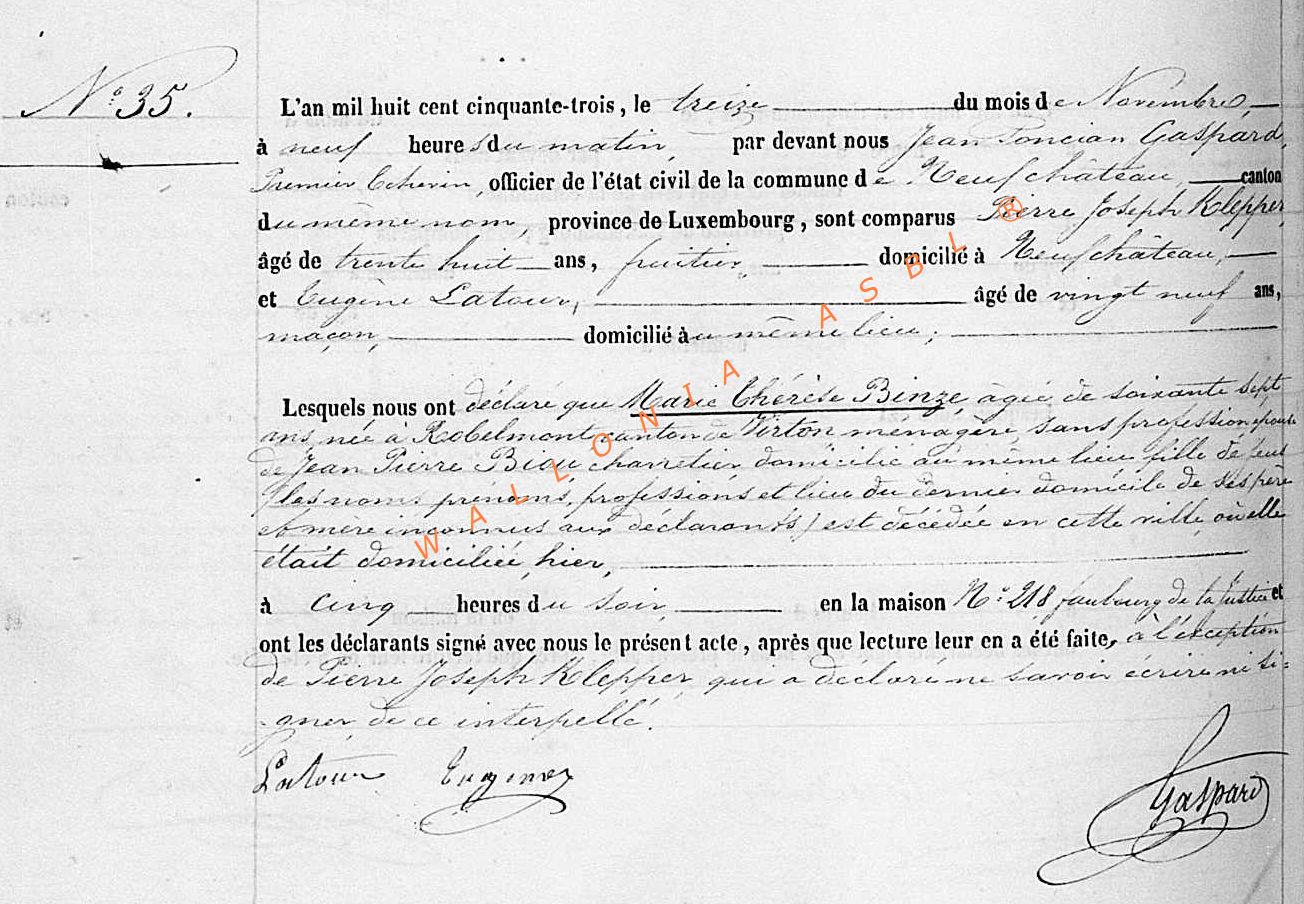 N° 35.
L'an mil huit cent cinquante-trois, le treize du mois de Novembre,
à neuf heures du matin, par devant nous Jean Poncian Gaspard,
Premier Echevin, officier de l'état civil de la commune de Neufchâteau, canton
du même nom, province de Luxembourg, sont comparus Pierre Joseph Klepper,
âgé de trente huit ans, fruitier, domicilié à Neufchâteau,
et Eugène Latour, âgé de vingt neuf ans,
maçon, domicilié au même lieu;
Lesquels nous ont déclaré que Marie Thérèse Binze, âgée de soixante sept
ans, née à Robelmont, canton de Virton, ménagère, sans profession, épouse
de Jean Pierre charretier domicilié au même lieu fille de feus
(les noms, prénoms, professions et lieu du dernier domicile de ses père
et mère inconnus aux déclarants) est décédée en cette ville, où elle
était domiciliée, hier,
à cinq heures du soir, en la maison N° 218 faubourg de la Justice et
ont les déclarants signé avec nous le présent acte, après que lecture leur en a été faite, à l'exception
de Pierre Joseph Klepper, qui a déclaré ne savoir écrire ni si-
gner, de ce interpellé.
Latour
Gaspard
WALLONIA ASBL ®